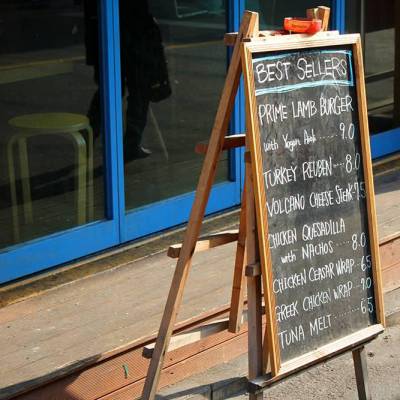 BEST SELLERS
PRIME LAMB BURGER
with Yogurt 9.0
TURKEY REUBEN .... 8.0
VOLCANO CHEESE STEAK 9.5
CHICKEN QUESADILLA
with NACHOS .... 8.0
CHICKEN CEASAR WRAP .. 6.5
GREEK CHICKEN WRAP ..
TUNA MELT .... 6.5